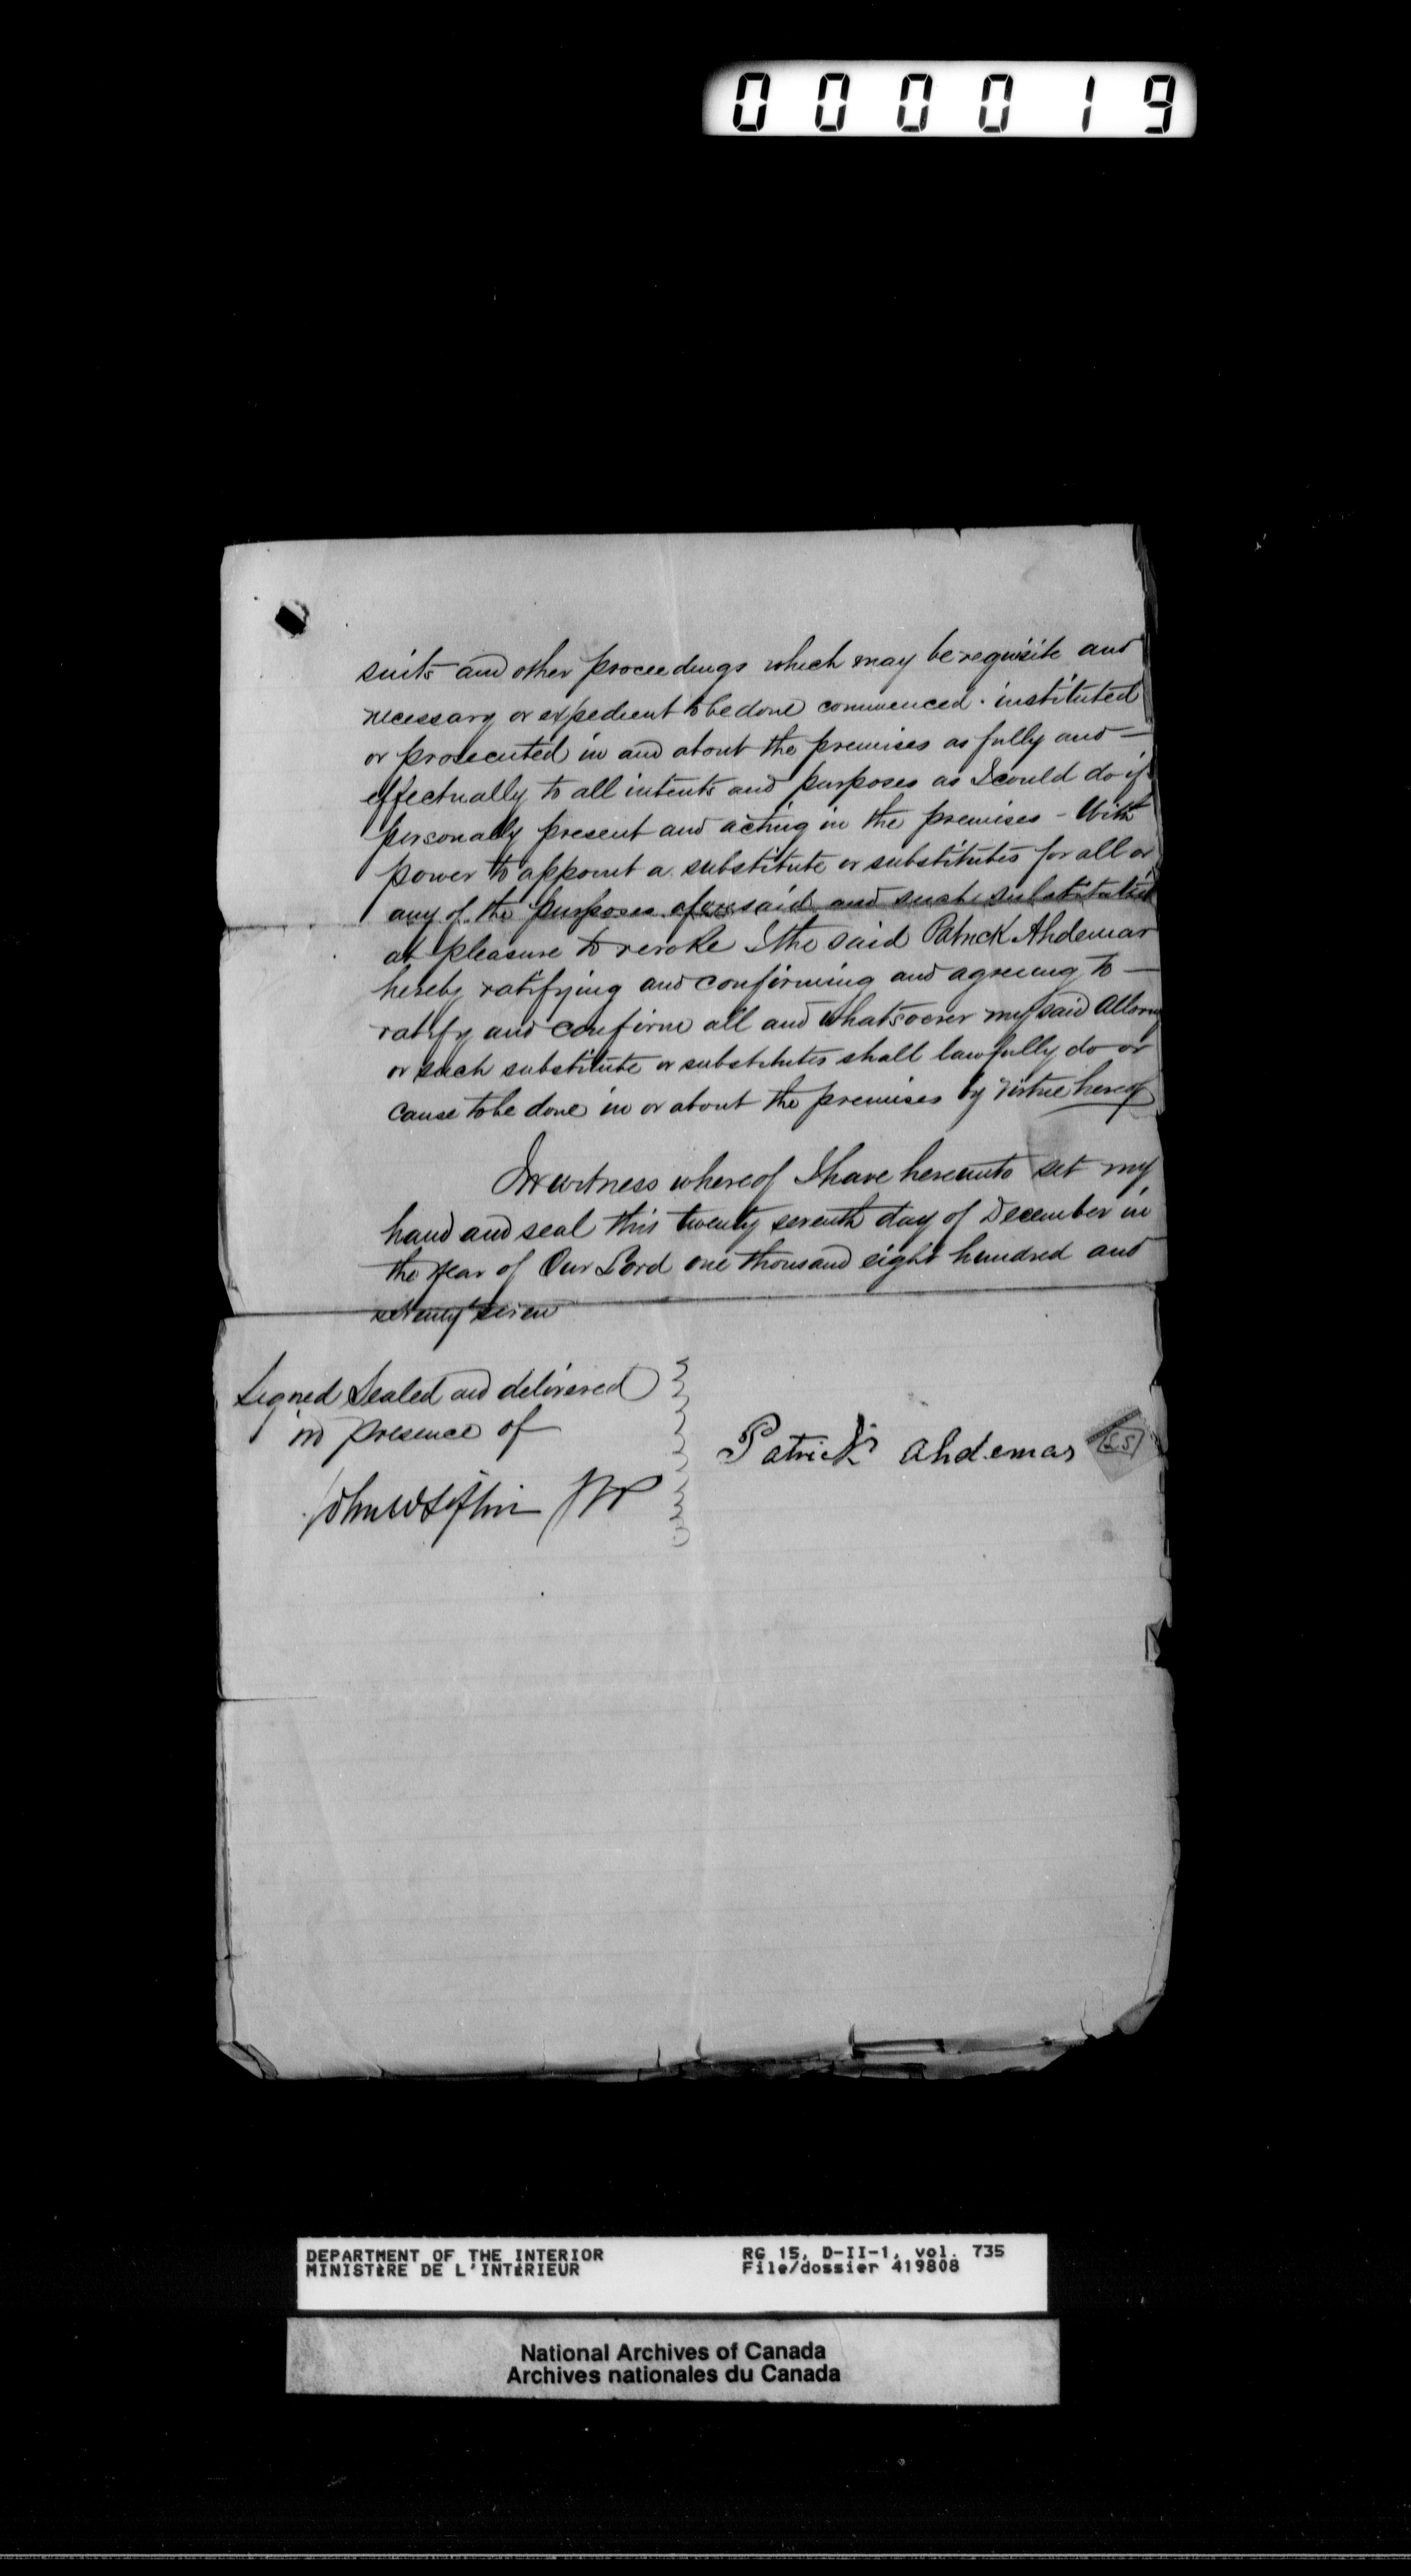 000019
suits and other proceedings which may be requisite and
necessary or expedient to be done commenced. instituted
or prosecuted in and about the premises as fully and —
effectually to all intents and purposes as I could do if
personally present and acting in the premises - With
power to appoint a substitute or substitutes for all or
any of the purposes aforesaid and such substitution
at pleasure to revoke I the said Patrick Ahdemar
hereby ratifying and confirming and agreeing to —
ratify and confirm all and whatsoever my said Attorney
or such substitute or substitutes shall lawfully do or
cause to be done in or about the premises by virtue hereof
In witness whereof I have hereunto set my
hand and seal this twenty seventh day of December in
the year of Our Lord one thousand eight hundred and
seventy seven
Signed Sealed and delivered
in presence of
Patrick ahdemar LS
John W JP
DEPARTMENT OF THE INTERIOR RG 15, D-II-1, vol. 735
MINISTÈRE DE L'INTÉRIEUR File/dossier 419808
National Archives of Canada
Archives nationales du Canada